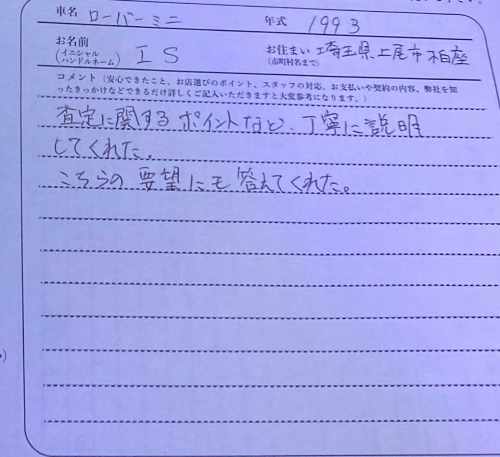 車名 ローバーミニ 年式 1993
お名前 (イニシャル ハンドルネーム) I S お住まい (市町村名まで) 埼玉県上尾市柏座
コメント(安心できたこと、お店選びのポイント、スタッフの対応、お支払いや契約の内容、弊社を知
ったきっかけなどできるだけ詳しくご記入いただきますと大変参考になります。)
査定に関するポイントなど、丁寧に説明
してくれた。
こちらの要望にも答えてくれた。